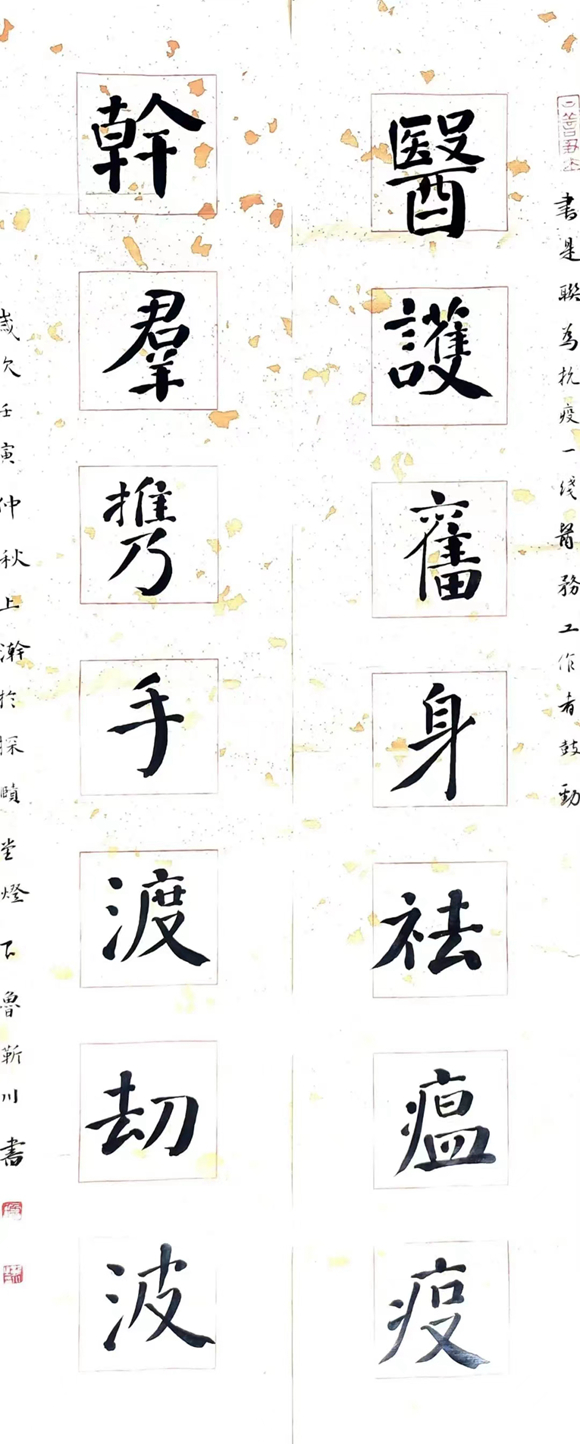 書是聯為抗疫一线醫務工作者鼓勁
醫護舊身祛瘟疫
幹羣攜手渡劫波
歲次壬寅仲秋上澣於探賾堂燈下魯靳川書